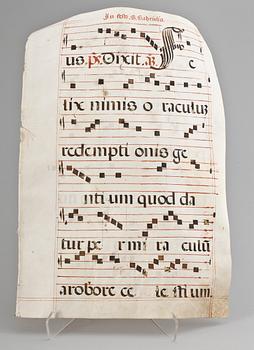 In festo S. Gabrielis.
us. ps. Dixit. A. F e
lix nimis o raculum
redempti onis ge
nti um quod da
tur pe r mi ra culū
a robore ce le stium